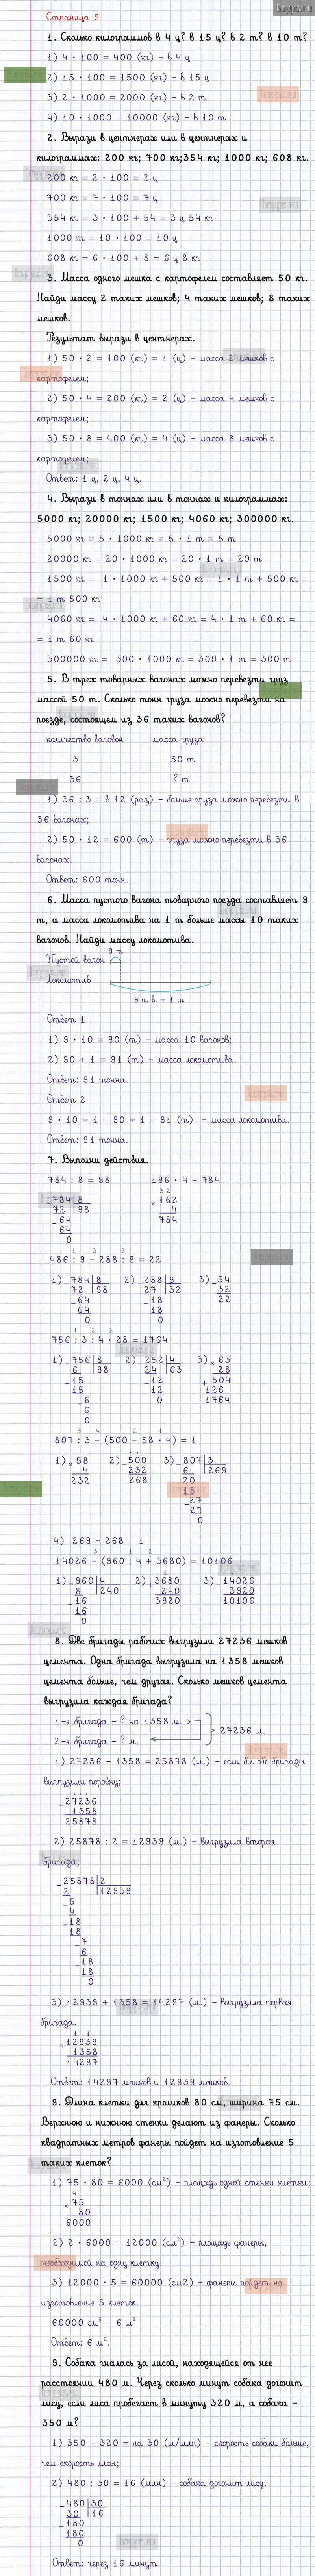 Страница 9
1. Сколько килограммов в 4 ц? в 15 ц? в 2 т? в 10 т?
1) 4 · 100 = 400 (кг) – в 4 ц
2) 15 · 100 = 1500 (кг) – в 15 ц
3) 2 · 1000 = 2000 (кг) – в 2 т
4) 10 · 1000 = 10000 (кг) – в 10 т
2. Вырази в центнерах или в центнерах и
килограммах: 200 кг; 700 кг;354 кг; 1000 кг; 608 кг.
200 кг = 2 · 100 = 2 ц
700 кг = 7 · 100 = 7 ц
354 кг = 3 · 100 + 54 = 3 ц 54 кг
1000 кг = 10 · 100 = 10 ц
608 кг = 6 · 100 + 8 = 6 ц 8 кг
3. Масса одного мешка с картофелем составляет 50 кг.
Найди массу 2 таких мешков; 4 таких мешков; 8 таких
мешков.
Результат вырази в центнерах.
1) 50 · 2 = 100 (кг) = 1 (ц) – масса 2 мешков с
картофелем;
2) 50 · 4 = 200 (кг) = 2 (ц) – масса 4 мешков с
картофелем;
3) 50 · 8 = 400 (кг) = 4 (ц) – масса 8 мешков с
картофелем;
Ответ: 1 ц, 2 ц, 4 ц.
4. Вырази в тоннах или в тоннах и килограммах:
5000 кг; 20000 кг; 1500 кг; 4060 кг; 300000 кг.
5000 кг = 5 · 1000 кг = 5 · 1 т = 5 т
20000 кг = 20 · 1000 кг = 20 · 1 т = 20 т
1500 кг = 1 · 1000 кг + 500 кг = 1 · 1 т + 500 кг =
= 1 т 500 кг
4060 кг = 4 · 1000 кг + 60 кг = 4 · 1 т + 60 кг =
= 1 т 60 кг
300000 кг = 300 · 1000 кг = 300 · 1 т = 300 т
5. В трех товарных вагонах можно перевезти груз
массой 50 т. Сколько тонн груза можно перевезти на
поезде, состоящем из 36 таких вагонов?
количество вагонов масса груза
3 50 т
36 ? т
1) 36 : 3 = в 12 (раз) – больше груза можно перевезти в
36 вагонах;
2) 50 · 12 = 600 (т) – груза можно перевезти в 36
вагонах.
Ответ: 600 тонн.
6. Масса пустого вагона товарного поезда составляет 9
т, а масса локомотива на 1 т больше массы 10 таких
вагонов. Найди массу локомотива.
9 т
Пустой вагон
Локомотив
9 п. в. + 1 т
Ответ 1
1) 9 · 10 = 90 (т) – масса 10 вагонов;
2) 90 + 1 = 91 (т) – масса локомотива.
Ответ: 91 тонна.
Ответ 2
9 · 10 + 1 = 90 + 1 = 91 (т) – масса локомотива.
Ответ: 91 тонна.
7. Выполни действия.
784 : 8 = 98 196 · 4 – 784
3 2
– 784 8 × 162
72 98 4
– 64 784
64
0
1 3 2
486 : 9 – 288 : 9 = 22
1) – 784 8 2) – 288 9 3) – 54
72 98 27 32 32
– 64 – 18 22
64 18
0 0
1 2 3
756 : 3 : 4 · 28 = 1764
1) – 756 8 2) – 252 4 3) × 63
6 98 24 63 28
– 15 – 12 + 504
15 12 126
– 6 0 1764
6
0
3 4 2 1
807 : 3 – (500 – 58 · 4) = 1
1) × 58 2) – 500 3) – 807 3
4 232 6 269
232 268 – 20
18
– 27
27
0
4) 269 – 268 = 1
3 1 2
14026 – (960 : 4 + 3680) = 10106
1
1) – 960 4 2) + 3680 3) – 14026
8 240 240 3920
– 16 3920 10106
16
0
8. Две бригады рабочих выгрузили 27236 мешков
цемента. Одна бригада выгрузила на 1358 мешков
цемента больше, чем другая. Сколько мешков цемента
выгрузила каждая бригада?
1-я бригада – ? на 1358 м. >
27236 м.
2-я бригада – ? м.
1) 27236 – 1358 = 25878 (м.) – если бы обе бригады
выгрузили поровну;
– 27236
1358
25878
2) 25878 : 2 = 12939 (м.) – выгрузила вторая
бригада;
– 25878 2
2 12939
– 5
4
– 18
18
– 7
6
– 18
18
0
3) 12939 + 1358 = 14297 (м.) – выгрузила первая
бригада.
1 1
+ 12939
1358
14297
Ответ: 14297 мешков и 12939 мешков.
9. Длина клетки для крошков 80 см, ширина 75 см.
Верхнюю и нижнюю стенки делают из фанеры. Сколько
квадратных метров фанеры пойдет на изготовление 5
таких клеток?
1) 75 · 80 = 6000 (см²) – площадь одной стенки клетки;
4
× 75
80
6000
2) 2 · 6000 = 12000 (см²) – площадь фанеры,
необходимой на одну клетку.
3) 12000 · 5 = 60000 (см2) – фанеры пойдет на
изготовление 5 клеток.
60000 см² = 6 м²
Ответ: 6 м².
9. Собака гналась за лисой, находящейся от нее
расстоянии 480 м. Через сколько минут собака догонит
лису, если лиса пробегает в минуту 320 м, а собака –
350 м?
1) 350 – 320 = на 30 (м/мин) – скорость собаки больше,
чем скорость лисы;
2) 480 : 30 = 16 (мин) – собака догонит лису.
– 480 30
30 16
– 180
180
0
Ответ: через 16 минут.